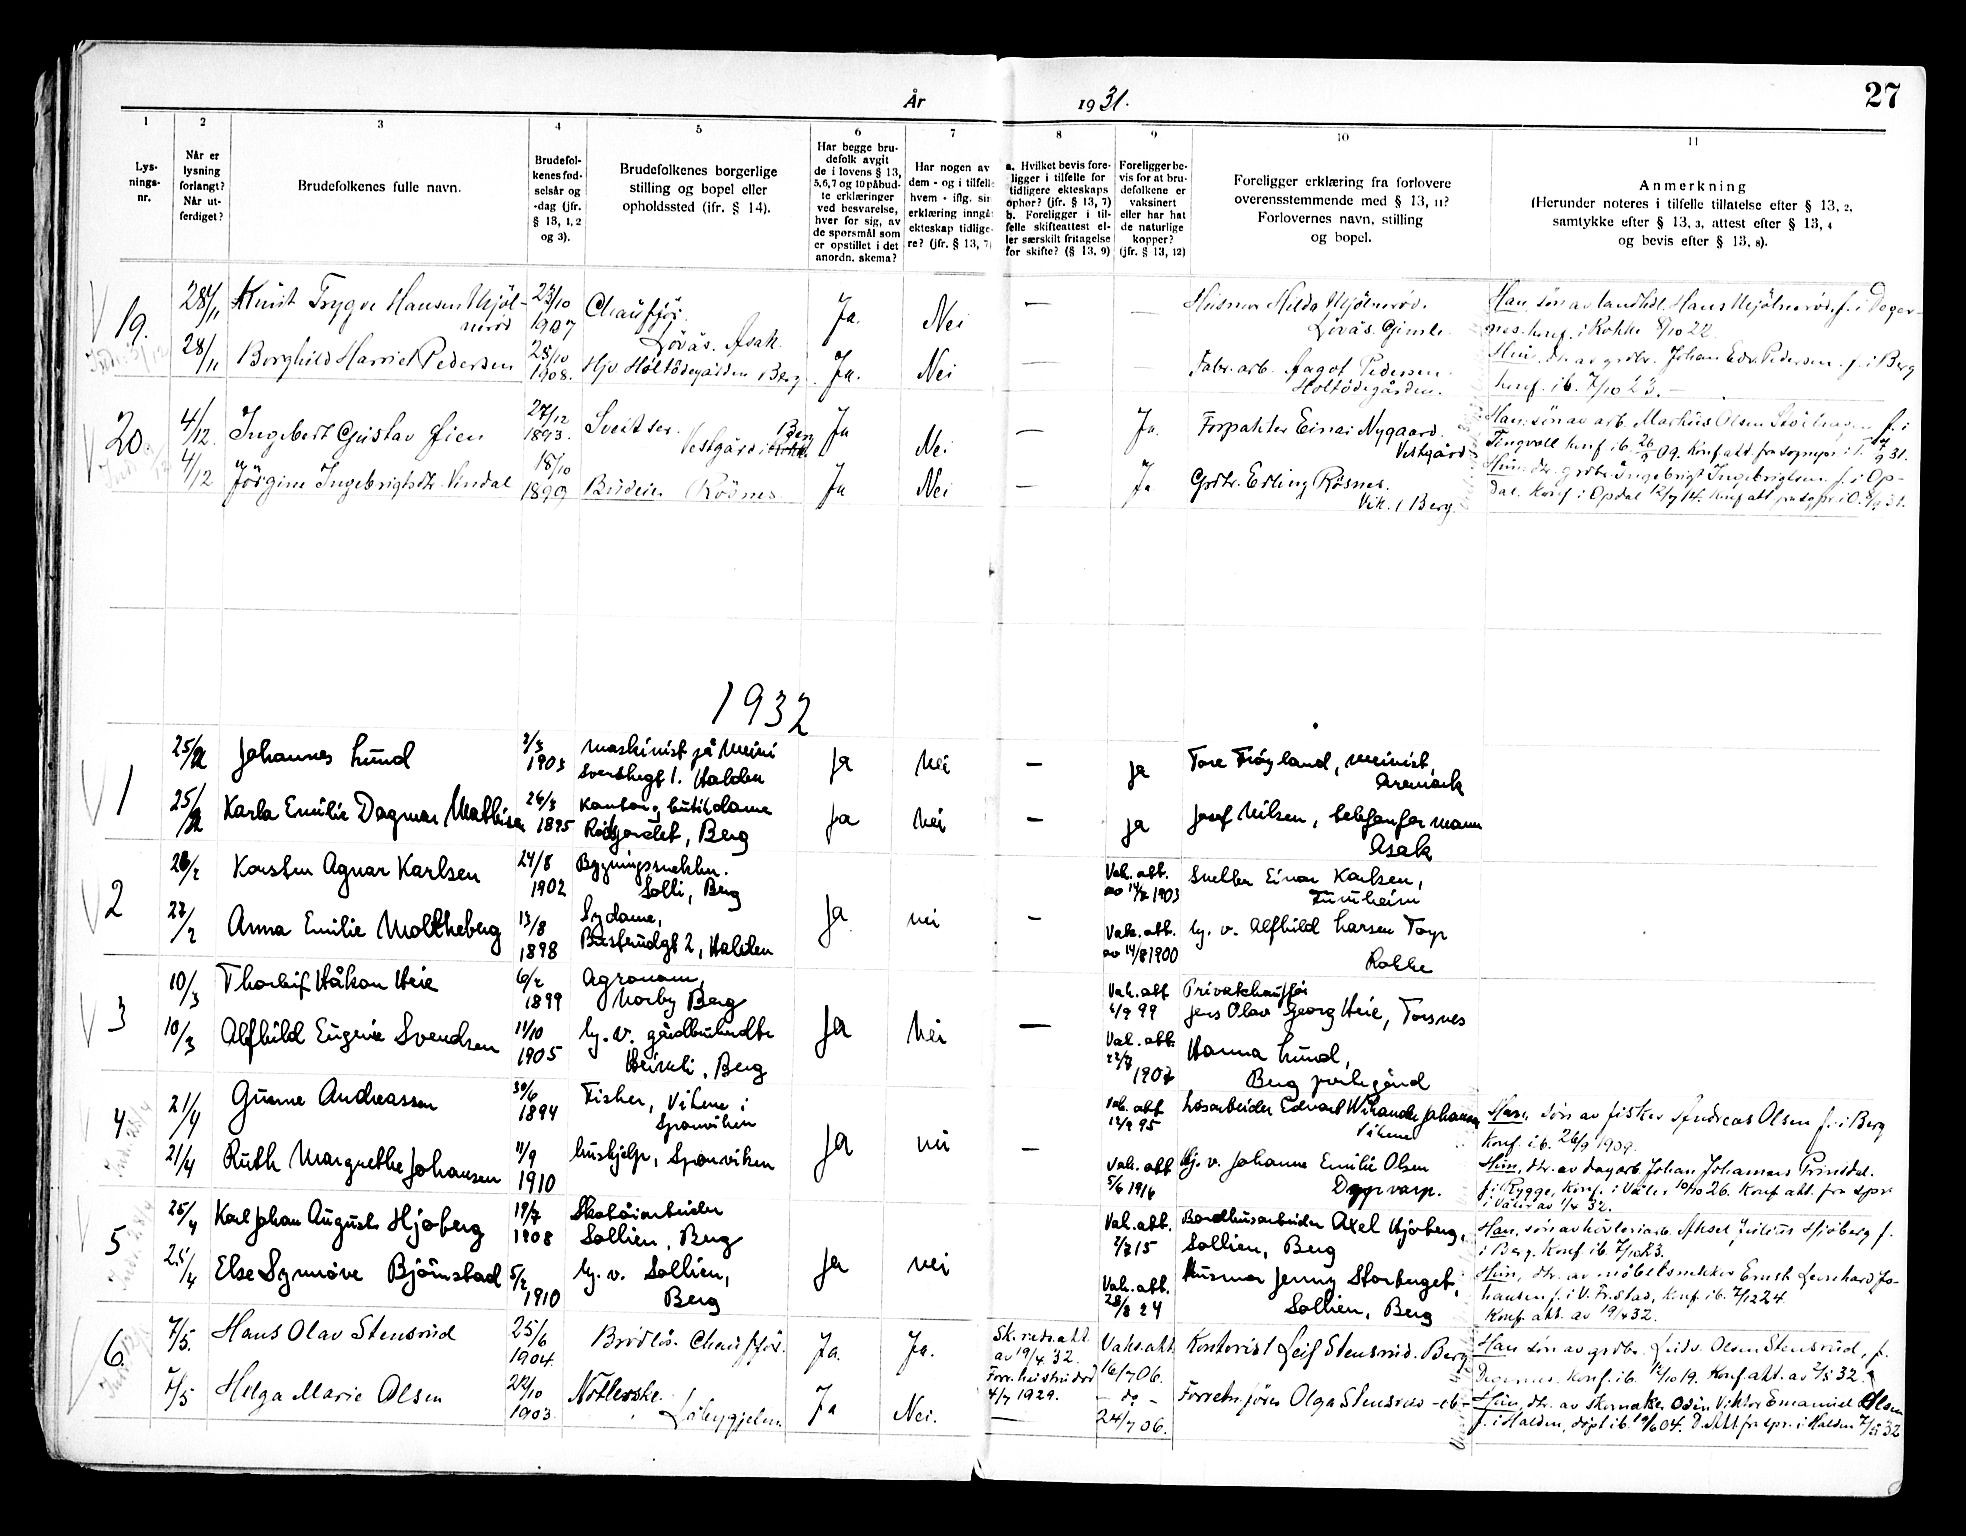 År 1931.
27
1 2 3 4 5 6 7 8 9 10 11
Lys-
nings-
nr.
Når er
lysning
forlangt?
Når ut-
ferdiget?
Brudefolkenes fulle navn.
Brudefol-
kenes fød-
selsår og
-dag (jfr.
§ 13, 1, 2
og 3).
Brudefolkenes borgerlige
stilling og bopel eller
opholdssted (ifr. § 14).
Har begge bru-
defolk avgit
de i lovens § 13,
5,6,7 og 10 påbud-
te erklæringer
ved besvarelse,
hver for sig, av
de spørsmål som
er opstillet i det
anordn. skema?
Har nogen av
dem - og i tilfelle
hvem - iflg. sin
erklæring inngå
ekteskap tidlige-
re? (jfr. § 13, 7)
a. Hvilket bevis fore-
ligger i tilfelle for
tidligere ekteskaps
ophør? (jfr. § 13, 7)
b. Foreligger i til-
felle skifteattest el-
ler særskilt fritagelse
for skifte? (§ 13, 9)
Foreligger be-
vis for at bru-
defolkene er
vaksinert
eller har hat
de naturlige
kopper?
(jfr. § 13, 12)
Foreligger erklæring fra forlovere
overensstemmende med § 13, 11?
Forlovernes navn, stilling
og bopel.
Anmerkning
(Herunder noteres i tilfelle tillatelse efter § 13, 2,
samtykke efter § 13, 3, attest efter § 13, 4
og bevis efter § 13, 8).
19.
28/11 Knut Trygve Hansen Mjöl-
nerød
23/10
1907
Chaufför
Lövås. Asak
Ja. Nei —
Husmor Hilda Mjölnerød.
Lövås. Gimle
Han, søn av landhdl. Hans Mjölnerød f. i Deger-
nes. konf. i Rokke 8/10 22.
28/11 Borghild Harriet Pedersen
25/10
1908.
Hjv Holtödegården Berg
Ja. Nei —
Fabr. arb. Aagot Pedersen.
Holtödegården.
Hun, dr. av grdbr. Johan Edv. Pedersen. f. i Berg
konf. ib. 7/10 23. —
20.
4/12. Ingebert Gustav Øien
27/12
1893.
Sveitser. Berg
Vestgård i
Ja Nei — Ja.
Forpakter Einar Nygaard.
Vestgård
Han, søn av arb. Markus Olsen f. i
Tingvoll konf ib. 26/9 09. Konf. att. fra sognepr. i T. 7/9 31.
4/12 Jörgine Ingebrigtsdtr. Vindal
18/10
1899
Budeie Rösnes
Ja Nei — Ja
Grdbr. Erling Rösnes.
Vik. i Berg.
Hun, dr. grdbr. Ingebrigt Ingebrigtsen. f. i Op-
dal. Konf. i Opdal 12/7 14. Konf att fra sogpr i O. 8/9 31.
1932
1
25/2 Johannes Lund
2/3
1903
Maskinist på Meieri
Sverdrupsgt 1. Halden
Ja Nei — Ja
Tore Frøyland, meierist,
Aremark
25/2 Karla Emilie Dagmar Mathisen
26/3
1895
Kontor og butikdame
Rødsjordet, Berg
Ja Nei — Ja
Josef Nilsen, telefonformann
Asak
2
26/2 Karsten Agnar Karlsen
24/8
1902
Bygningssnekker.
Solli, Berg
Ja nei —
Vak. att.
av 14/7 1903
Snekker Einar Karlsen,
Tumheim
27/2 Anna Emilie Moltkeberg
13/8
1898
Sydame,
Busterudgt 2, Halden
Vak. att.
av 14/8 1900
hj. v. Alfhild Larsen Torp
Rokke
3
10/3 Thorleif Håkon Heie
6/2
1899
Agronom,
Norby Berg
Ja Nei —
Vak. att
6/9 99
Privatchauffør
Jens Olav Georg Heie, Torsnes
10/3 Alfhild Eugenie Svendsen
11/10
1905
hj. v. gårdbruk
, Berg
Vak. att.
22/8
1907
Hanna Lund,
Berg prestegård
4
21/4 Gunne Andreassen
30/6
1894
Fisker, Vikene i
Sponviken
Ja nei —
Vak. att
12/9 95
Løsarbeider Edvart Wikander Johansen
Vikene
Han, søn av fisker Andreas Olsen f. i Berg
Konf. ib. 26/9 1909.
21/4 Ruth Margrethe Johansen
11/9
1910
huskjelp, Sponviken
Vak. att
5/6 1916
hj. v. Johanne Emilie Olsen
Dypvarp.
Hun, dtr. av dagarb Johan Johannes Prinsdal.
f. i Rygge, Konf. i Våler 10/10 26. Konf att. fra spr
i Våler av 1/4 32.
5
25/4 Karl Johan August Hjøberg
19/7
1908
Skotøiarbeider
Sollien, Berg
Ja nei
Vak. att.
2/7 15
Bordhusarbeider Axel Hjøberg,
Sollien, Berg
Han, søn av høvleriarb. Aksel Julius Hjøberg f.
i Berg, Konf ib. 7/10 23.
25/4 Else Synnøve Bjørnstad
5/2
1910
hj. v. Sollien,
Berg
Vak. att.
28/8 24
Husmor Jenny Storberget,
Sollien, Berg
Hun, dtr. av møbelsnekker Ernst Leonhard Jo-
hansen f. i V. Fr.stad, Konf. ib. 7/12 24.
Konf. att. av 19/4 32.
6.
7/5. Hans Olav Stensrud
25/6
1904.
Brödløs. Chauffør.
Ja. Ja.
Sk.rets att.
av 19/4 32.
Forr. hustru død
4/7 1929.
Vaks. att
16/7 06.
Kontorist Leif Stensrud. Berg
Han søn av grdbr. Ludv. Olsen Stensrud, f.
Degernes. Konf. ib. 12/10 19. Konf att. av 2/5 32.
7/5 Helga Marie Olsen
22/10
1903.
Ja Nei. —
— do —
24/7 06.
Forretn.förer Olga Stensrud — ib —
Hun, dtr. av skomaker Odin Viktor Emanuel Olsen
f. i Halden, døpt ib. 19/6 04. D. Att. fra spr. i Halden 7/5 32